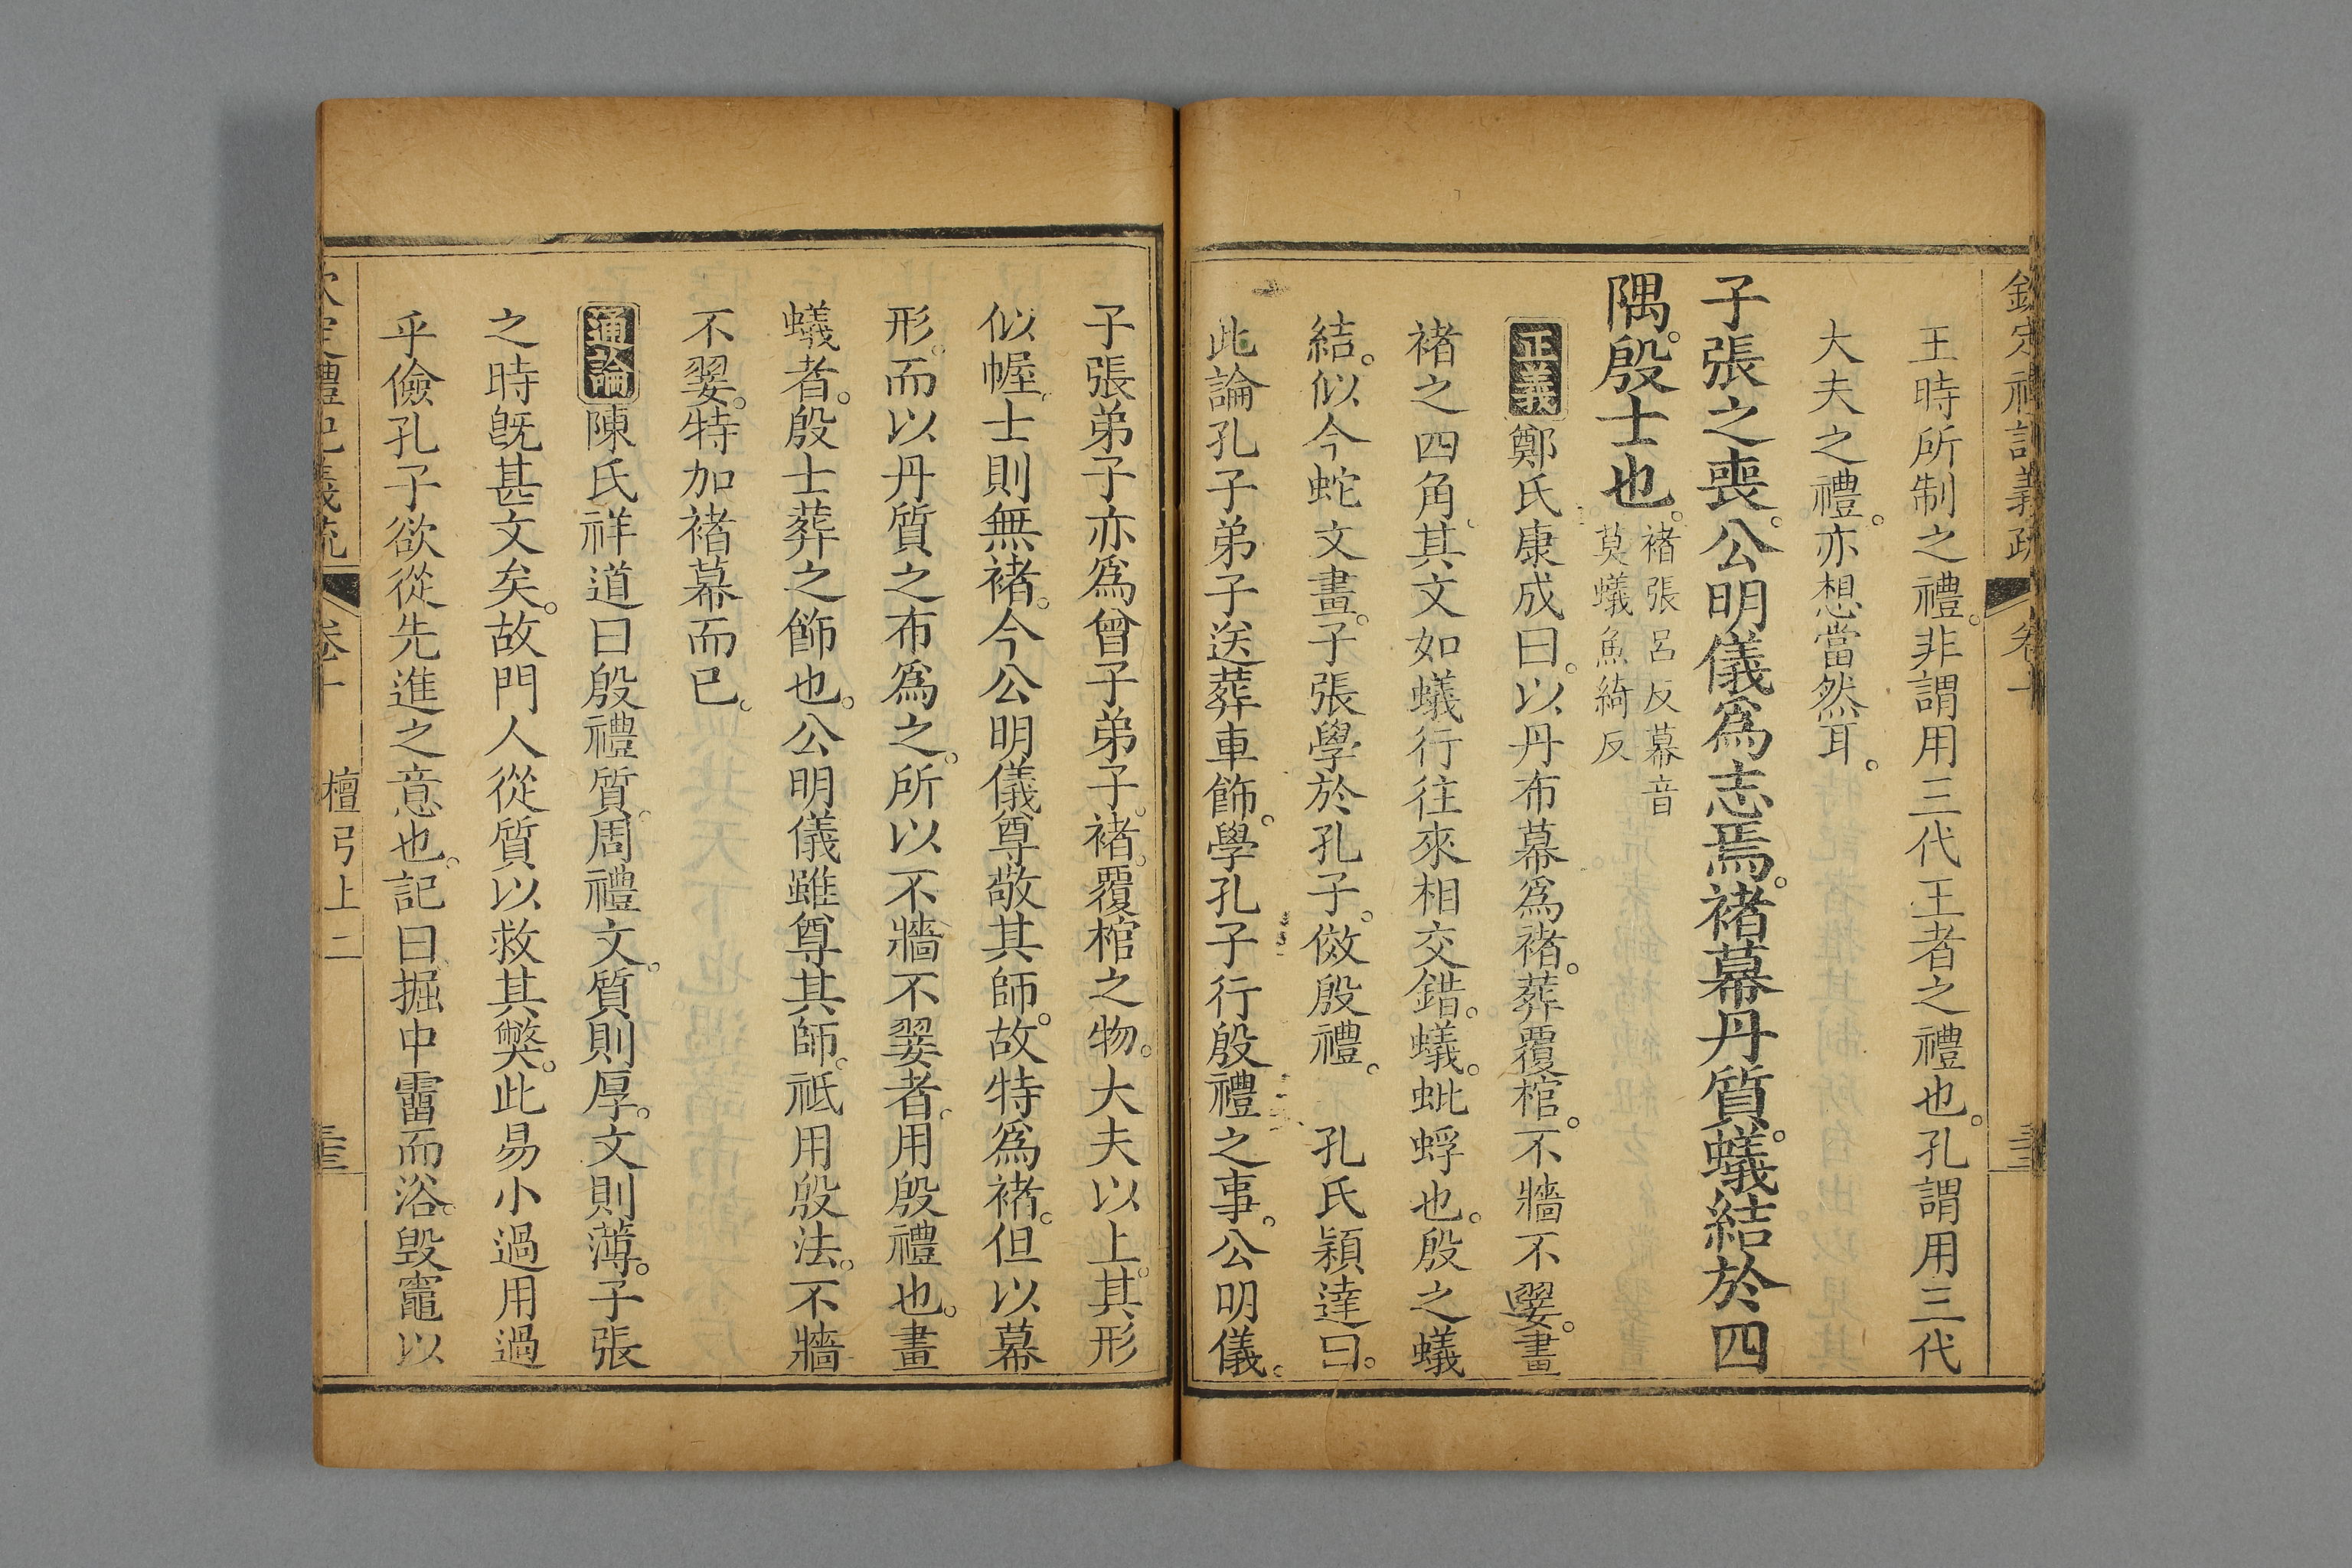 欽定禮記義疏 卷十
王時所制之禮。非謂用三代王者之禮也。孔謂用三代
大夫之禮。亦想當然耳。
子張之喪。公明儀爲志焉。褚幕丹質。蟻結於四
隅。殷士也。
褚張呂反幕音
莫蟻魚綺反
正義 鄭氏康成曰。以丹布幕爲褚。葬覆棺。不牆不翣。畫
褚之四角。其文如蟻行往來相交錯。蟻。蚍蜉也。殷之蟻
結。似今蛇文畫。子張學於孔子。倣殷禮。 孔氏穎達曰。
此論孔子弟子送葬車飾。學孔子行殷禮之事。公明儀。
子張弟子亦爲曾子弟子。褚。覆棺之物。大夫以上。其形
似幄。士則無褚。今公明儀尊敬其師。故特爲褚。但以幕
形。而以丹質之布爲之。所以不牆不翣者。用殷禮也。畫
蟻者。殷士葬之飾也。公明儀雖尊其師。祗用殷法。不牆
不翣。特加褚幕而已。
通論 陳氏祥道曰殷禮質。周禮文。質則厚。文則薄。子張
之時旣甚文矣。故門人從質以救其獘。此易小過用過
乎儉孔子欲從先進之意也。記曰掘中霤而浴。毁竈以
欽定禮記義疏 卷十 檀弓上二